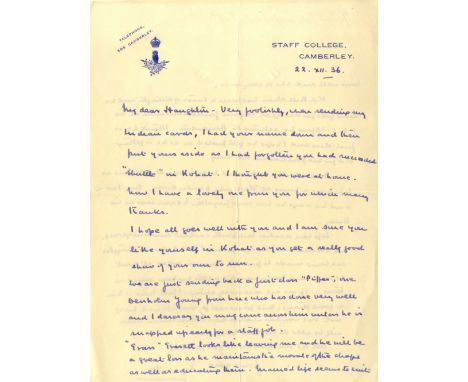 TELEPHONE.
CAMBERLEY.
STAFF COLLEGE,
CAMBERLEY.
22. XII. 36.
My dear Haughton - Very foolishly, when sending my
Indian cards, I had your name down and then
put yours aside as I had forgotten you had succeeded
in Kohat. I thought you were at home.
Now I have a lovely one from you for which many
thanks.
I hope all goes well with you and I am sure you
like yourself in Kohat as you get a really good
show of your own to run.
We are just sending back a first class "Piffer", one
Young from here who has done very well
and I daresay you may come across him unless he is
snapped up early for a staff job.
looks like leaving me and he will be
a great loss as he maintains the morale of the chaps
as well as educating them. Married life seems to suit